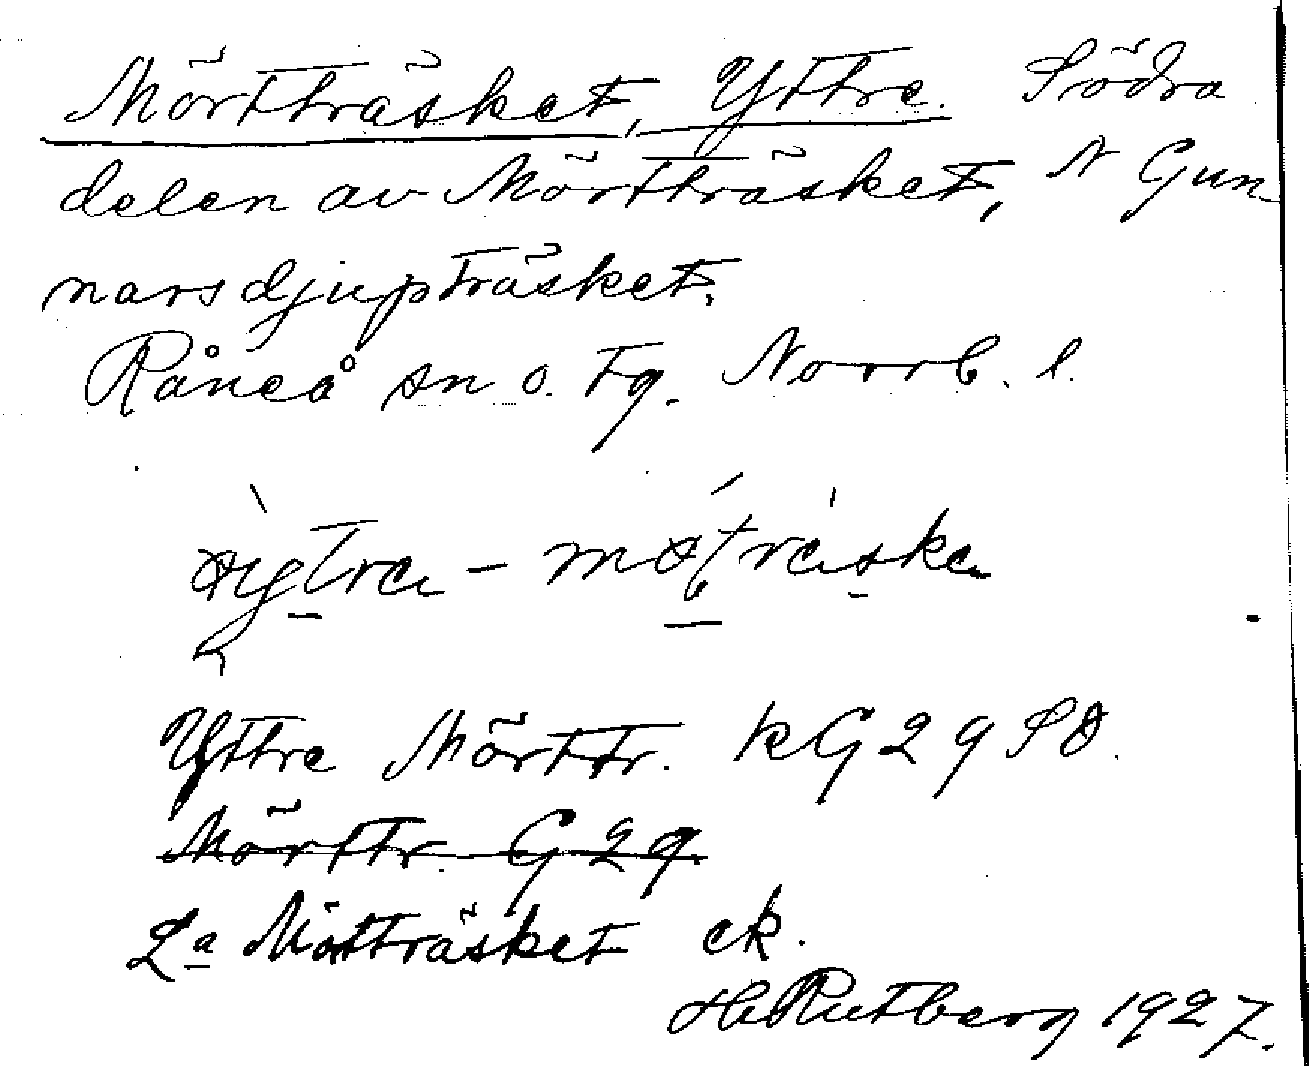 Mörtträsket, Yttre. Södra
delen av Mörtträsket, N Gun-
narsdjupträsket.
Råneå sn o. tg. Norrb. l.
Yttre Mörttr. kG29 SO.
Mörttr. G29.
La Mörtträsket ek.
H. Rutberg 1927.